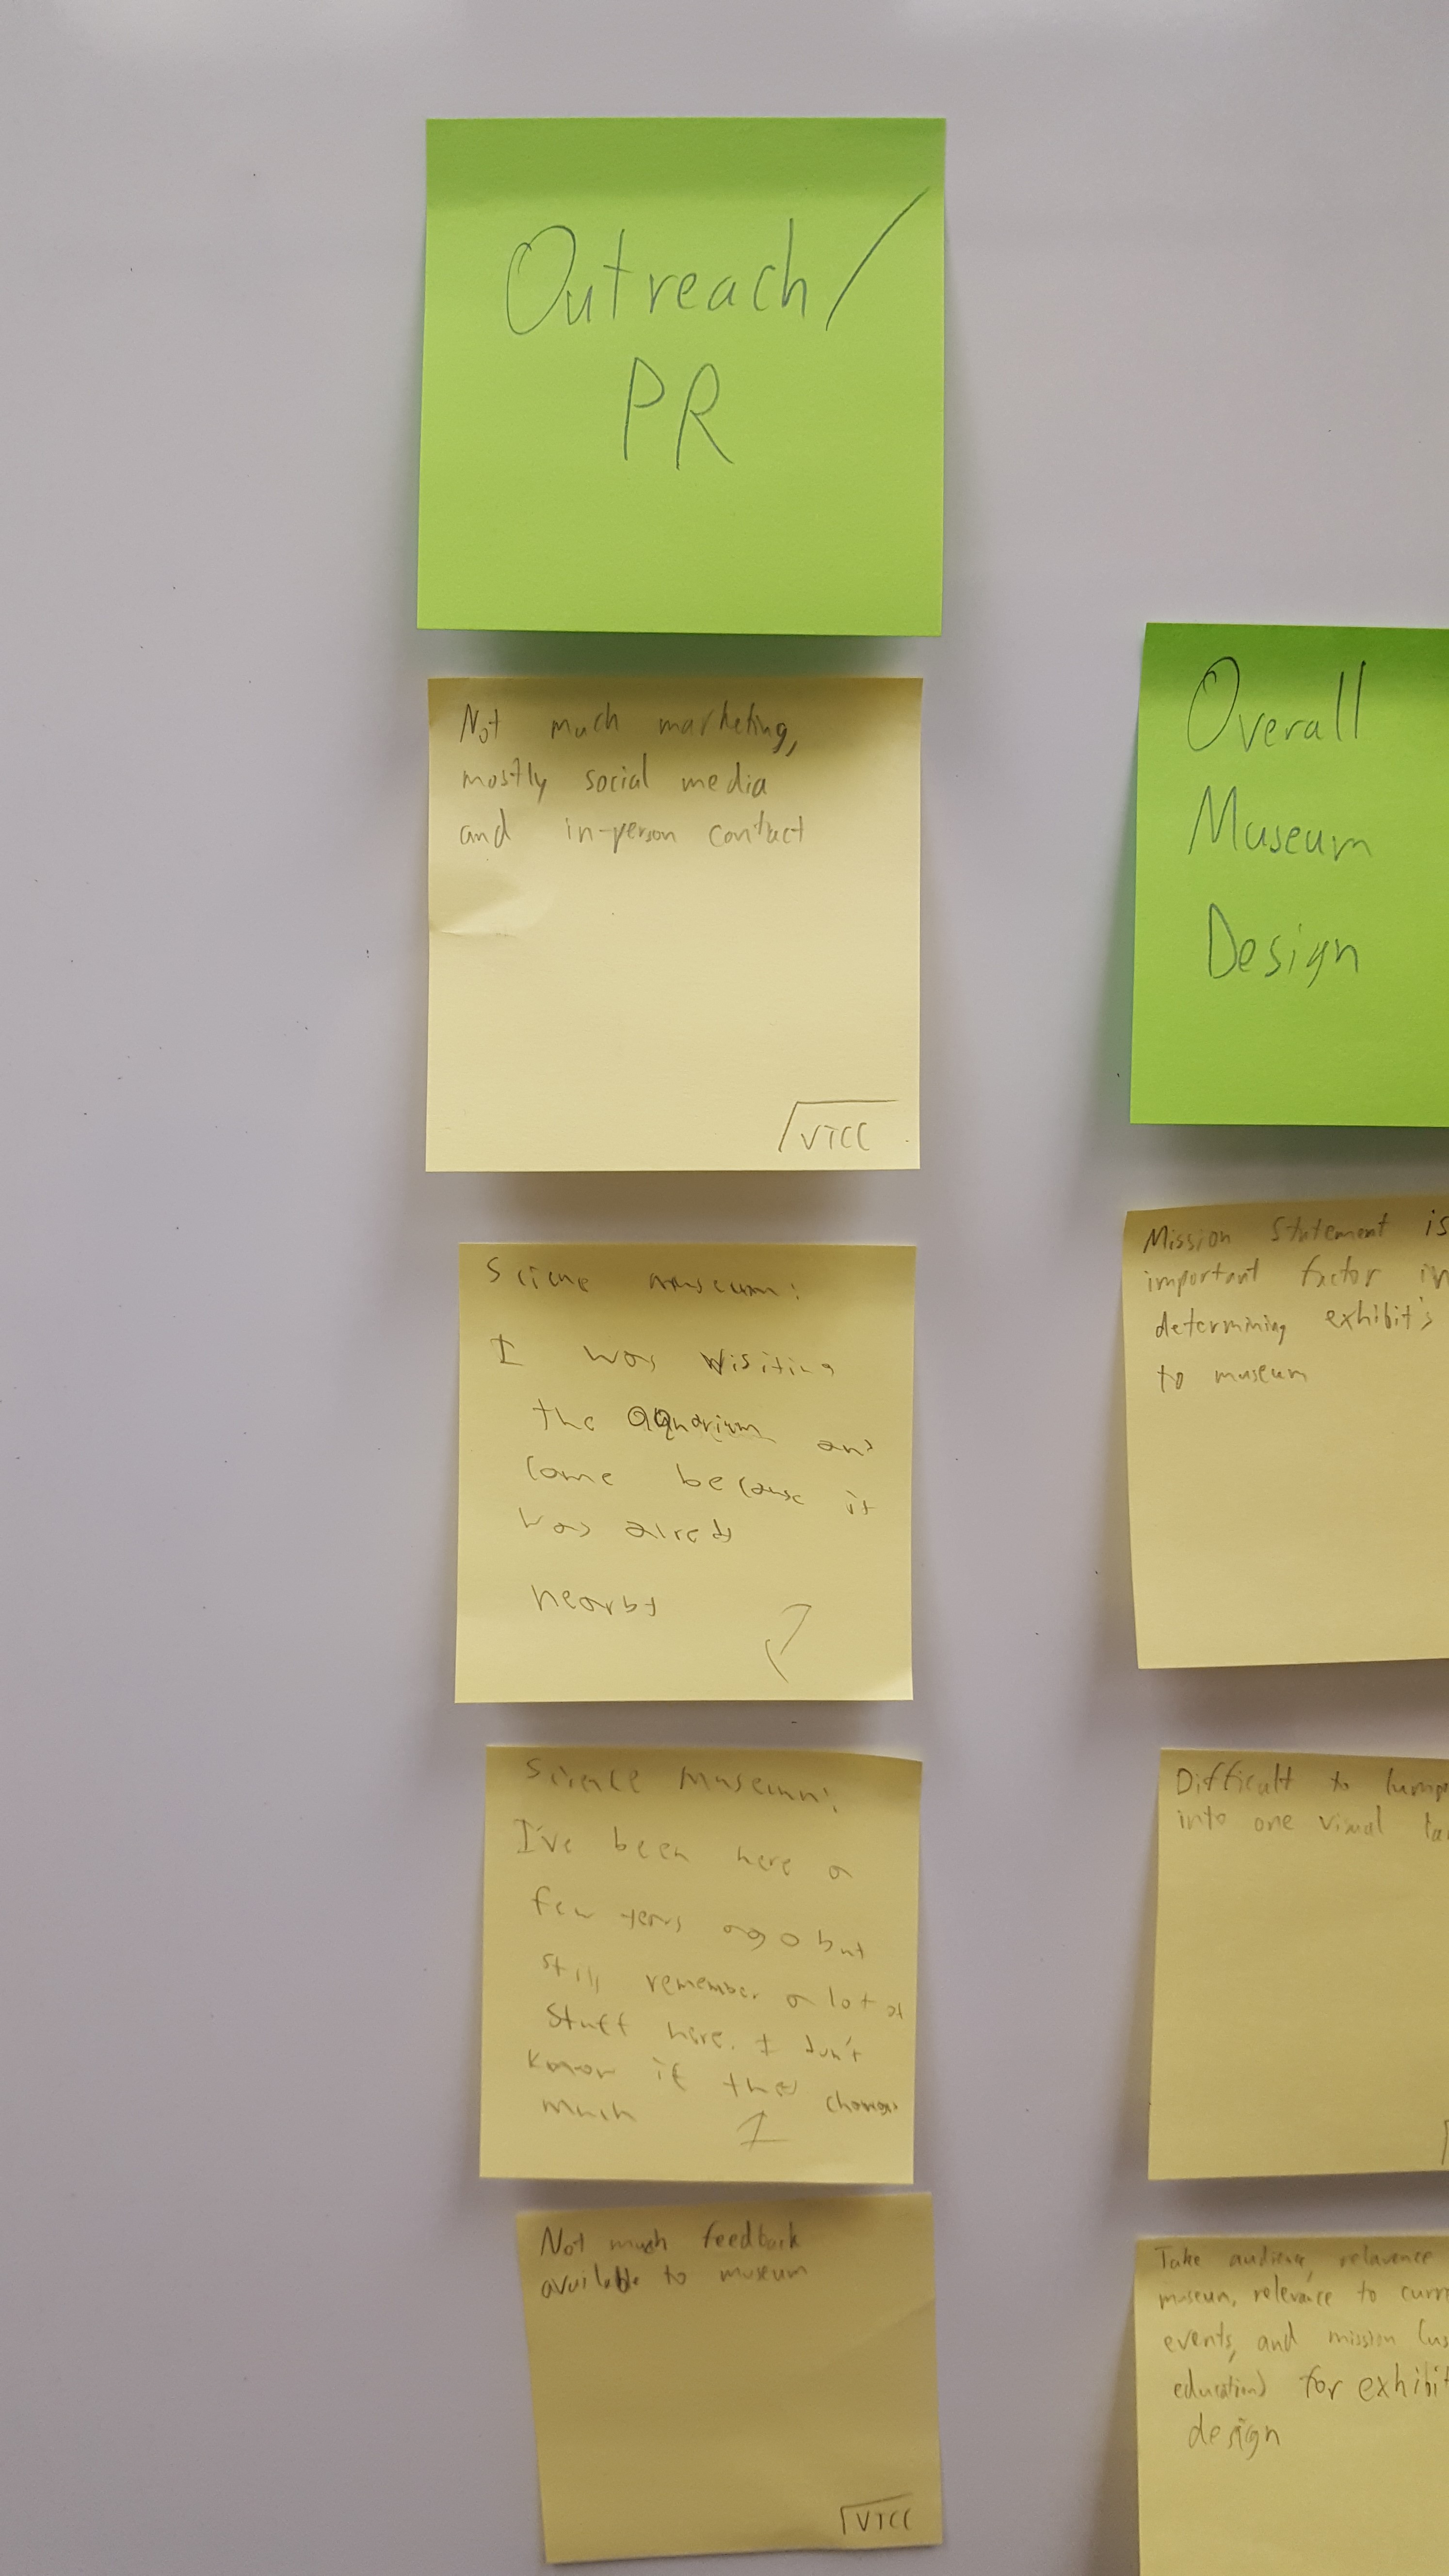 Outreach/
PR
Not much marketing,
mostly social media
and in-person contact
VTCC
Science museum:
I was visiting
the aquarium and
came because it
was alredy
nearby
Science Museum:
I've been here a
few years ago but
still remember a lot of
stuff here. I don't
know if they changes
much
Not much feedback
available to museum
VTCC
Overall
Museum
Design
Mission Statement is
important factor in
determining exhibit's
to museum
Difficult to lump
into one visual
Take audience, relavence
museum, relevance to curr
events, and mission
education) for exhibit
design